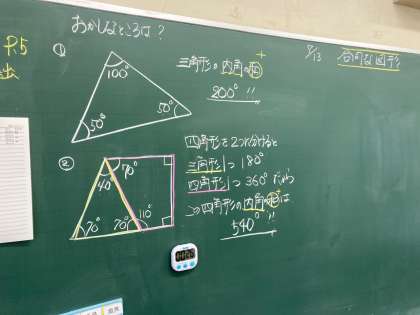 P.5
出
おかしなところは？
9/13 合同な図形
①
100°
50°
50°
三角形の内角の和
+
200°
②
40°
70°
70°
70°
110°
四角形を2つに分けると
三角形1つ180°
四角形1つ360°だから
⇒四角形の内角の和は
540°